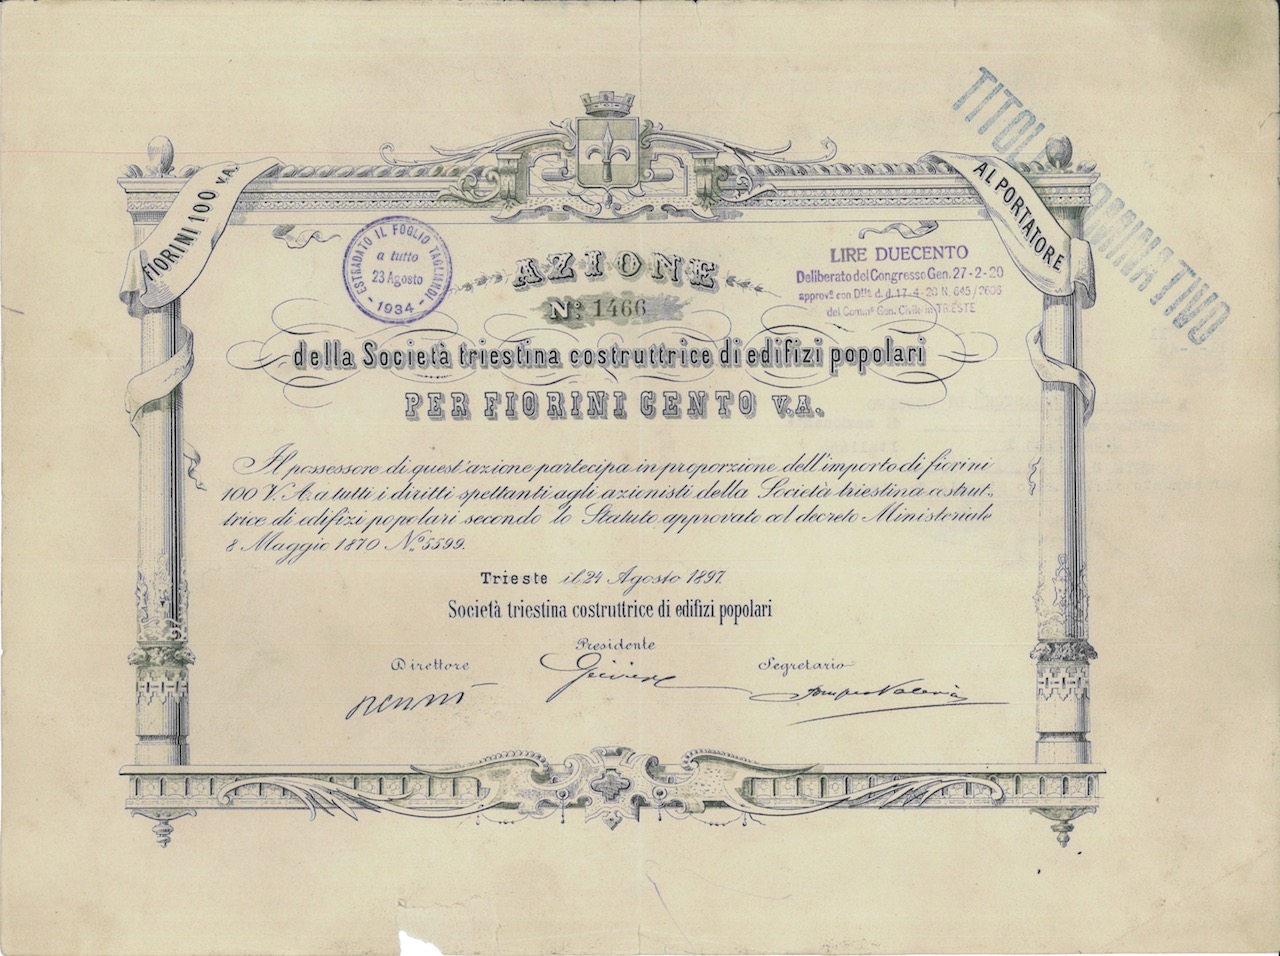 TITOLO NOMINATIVO
FIORINI 100 V.A.
AL PORTATORE
ESTRADATO IL FOGLIO TAGLIANDI
a tutto
23 Agosto
- 1934 -
AZIONE
Nº 1466
LIRE DUECENTO
Deliberato del Congresso Gen. 27-2-20
approvª con Dttº d. d. 17-4-20 N. 645/2606
del Commº Gen. Civile in TRIESTE
della Società triestina costruttrice di edifizi popolari
PER FIORINI CENTO V.A.
Il possessore di quest'azione partecipa in proporzione dell'importo di fiorini
100 V. A. a tutti i diritti spettanti agli azionisti della Società triestina costrut-
trice di edifizi popolari secondo lo Statuto approvato col decreto Ministeriale
8 Maggio 1870 Nº 5599.
Trieste il 24 Agosto 1897.
Società triestina costruttrice di edifizi popolari
Presidente
Direttore
Segretario